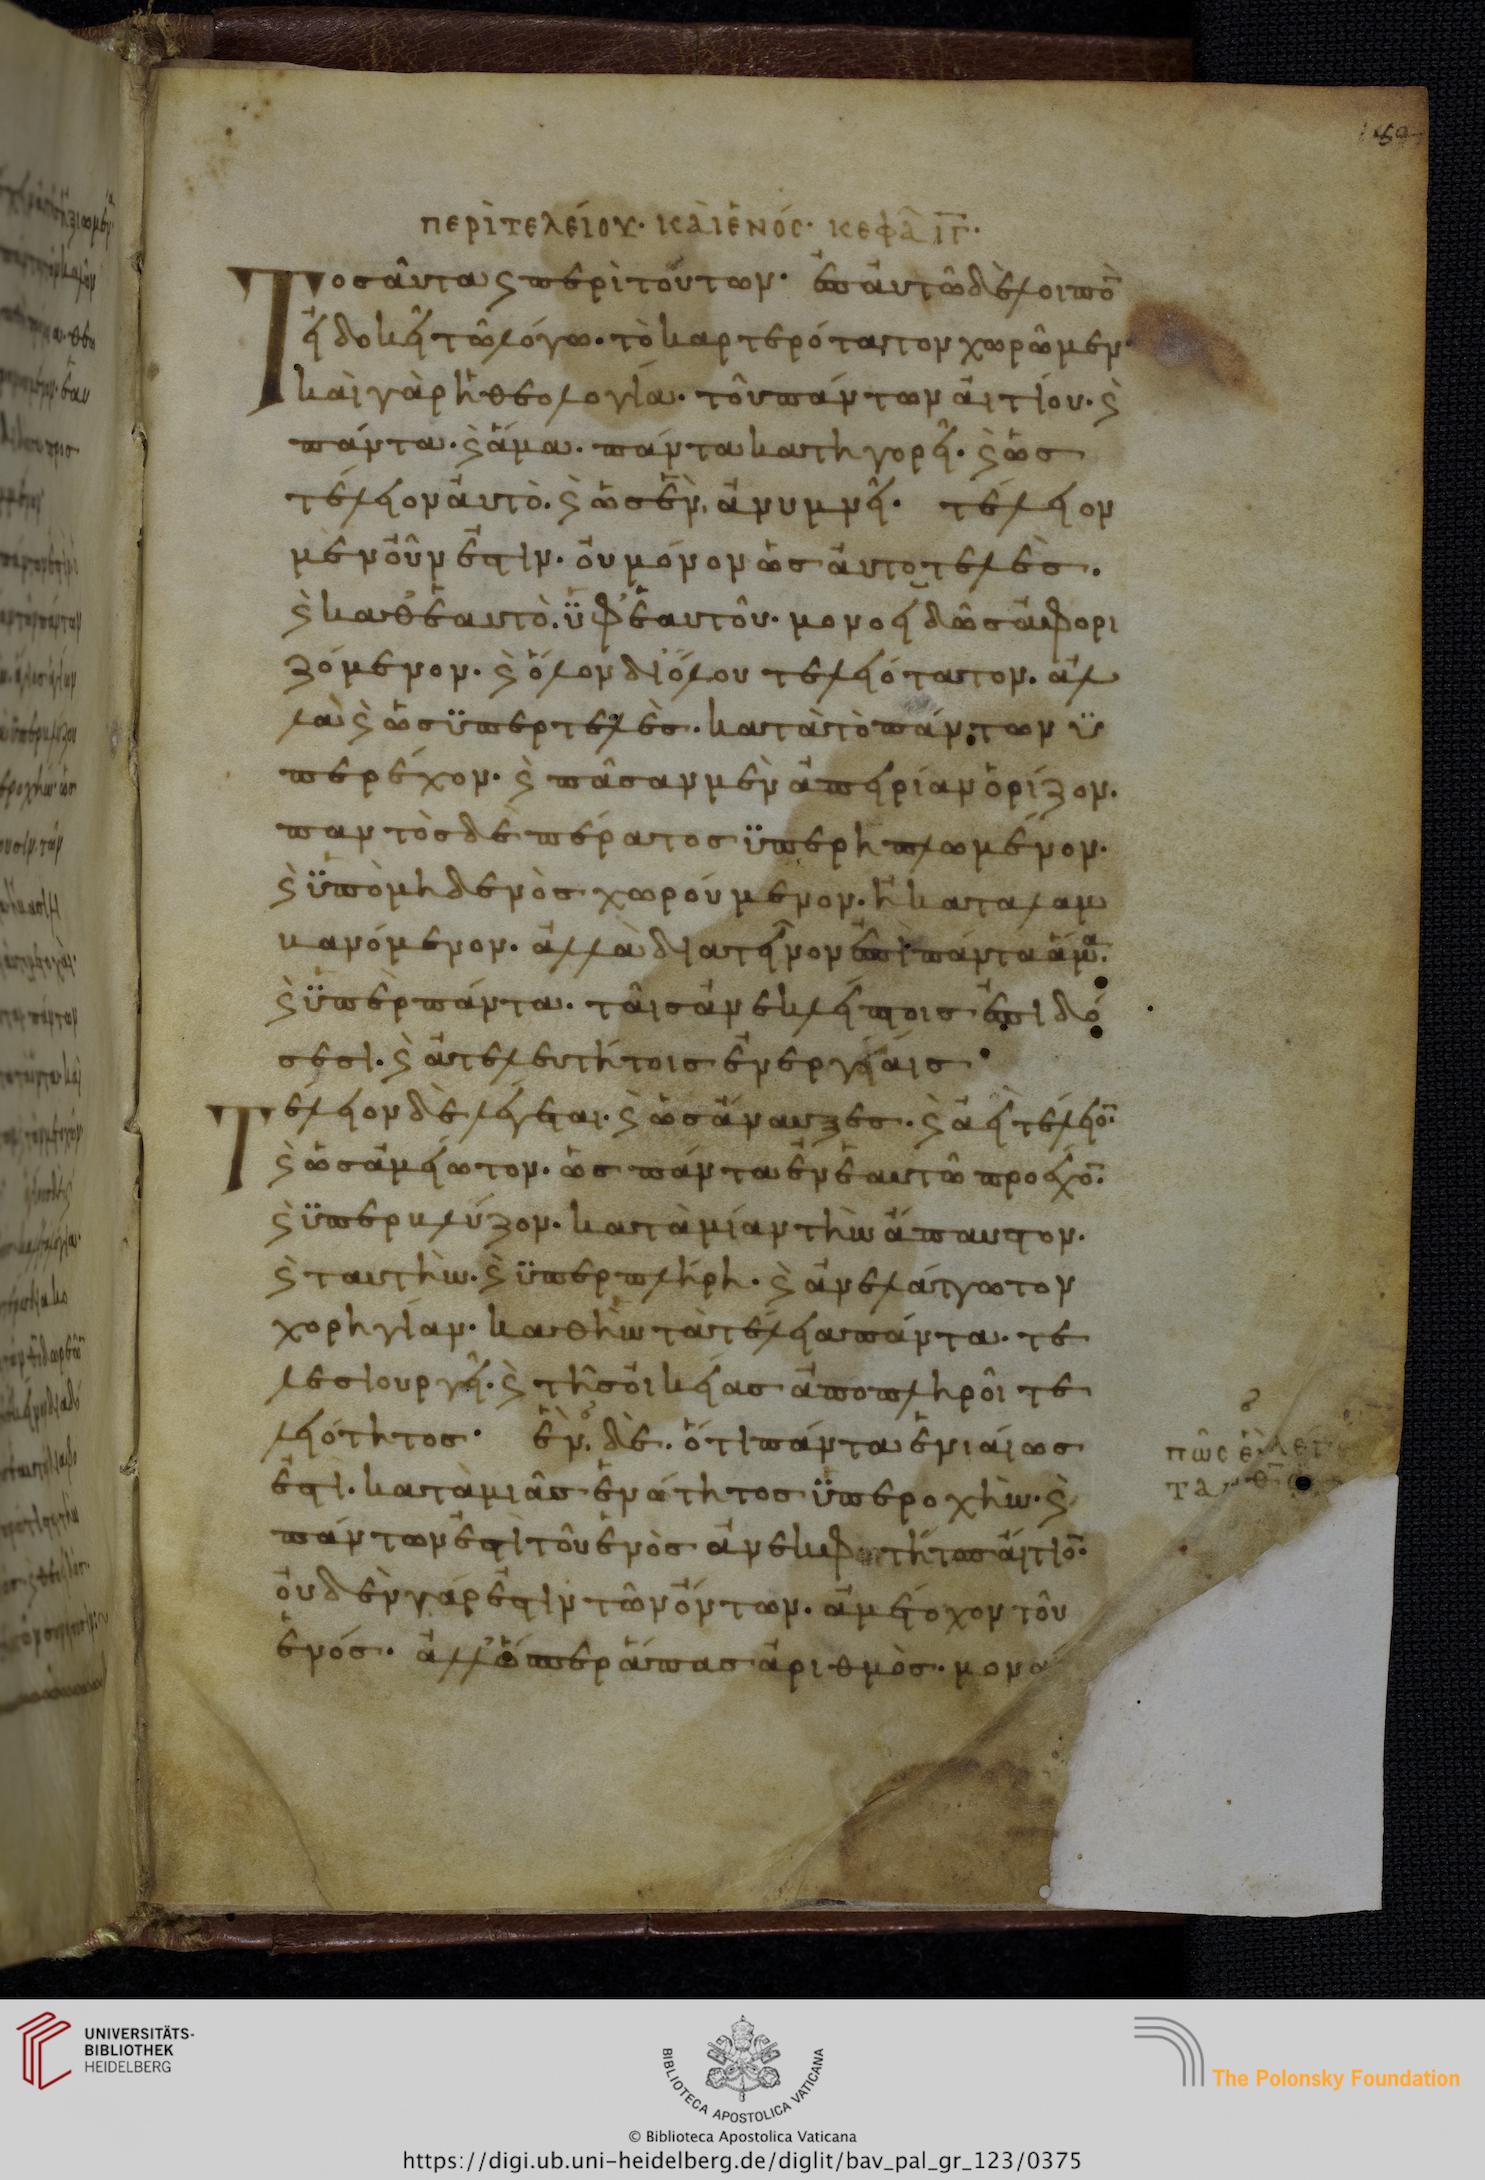 περὶ τελείου· καὶ ἑνός· κεφα ιγ·
Τοσαῦτα ϛ περὶ τούτων· ἐπ αὐτῶ δὲ λοιπὸ
εἰ δοκεῖ τῶ λόγω· τὸ καρτερότατον χωρῶμεν·
καὶ γὰρ ἡ θεολογία· τοῦ πάντων αἰτίου· ϛ
πάντα· ϛ ἅμα· πάντα κατηγορεῖ· ϛ ὡς
τέλειον αὐτὸ· ϛ ὡς ἓν, ἀνυμνεῖ· τέλειον
μὲν οὖν ἐστιν· οὐ μόνον ὡς αὐτοτελὲς·
ϛ καθ' ἑαυτὸ· ὑφ' ἑαυτοῦ· μονοειδῶς ἀφορι
ζόμενον· ϛ ὅλον δι' ὅλου τελειότατον· ἀλ
λὰ ϛ ὡς ὑπερτελὲς· κατὰ τὸ πάντων ὑ
περέχον· ϛ πᾶσαν μὲν ἀπειρίαν ὁρίζον·
παντὸς δὲ πέρατος ὑπερηπλωμένον·
ϛ ὑπὸ μηδενὸς χωρούμενον· ἢ καταλαμ
βανόμενον· ἀλλὰ διατεῖνον ἐπὶ πάντα ἅμα·
ϛ ὑπὲρ πάντα· ταῖς ἀνεκλείπτοις ἐπιδό
σεσι· ϛ ἀτελευτήτοις ἐνεργείαις·
Τέλειον δὲ λέγεται· ϛ ὡς ἀναυξες· ϛ ἀεὶ τέλειο·
ϛ ὡς ἀμείωτον· ὡς πάντα ἐν ἑαυτῶ προέχο·
ϛ ὑπερβλύζον· κατὰ μίαν τὴν ἄπαυστον·
ϛ ταυτὴν· ϛ ὑπερπλήρη· ϛ ἀνελάττωτον
χορηγίαν· καθ ἣν τὰ τέλεια πάντα· τε
λεσιουργεῖ· ϛ τῆς οἰκείας ἀποπληροῖ τε
λειότητος· ἓν, δὲ· ὅτι πάντα ἑνιαίως
ἐστὶ· κατὰ μιᾶς ἑνότητος ὑπεροχὴν· ϛ
πάντων ἐστὶ τοῦ ἑνὸς ἀνεκφοιτήτως αἴτιο·
οὐδὲν γάρ ἐστιν τῶν ὄντων· ἀμέτοχον τοῦ
ἑνός· ἀλλ' ὥσπερ ἅπας ἀριθμὸς· μονα
πῶς ἓ λεγ
ΤΑ
UNIVERSITÄTS-
BIBLIOTHEK
HEIDELBERG
BIBLIOTECA APOSTOLICA VATICANA
The Polonsky Foundation
© Biblioteca Apostolica Vaticana
https://digi.ub.uni-heidelberg.de/diglit/bav_pal_gr_123/0375